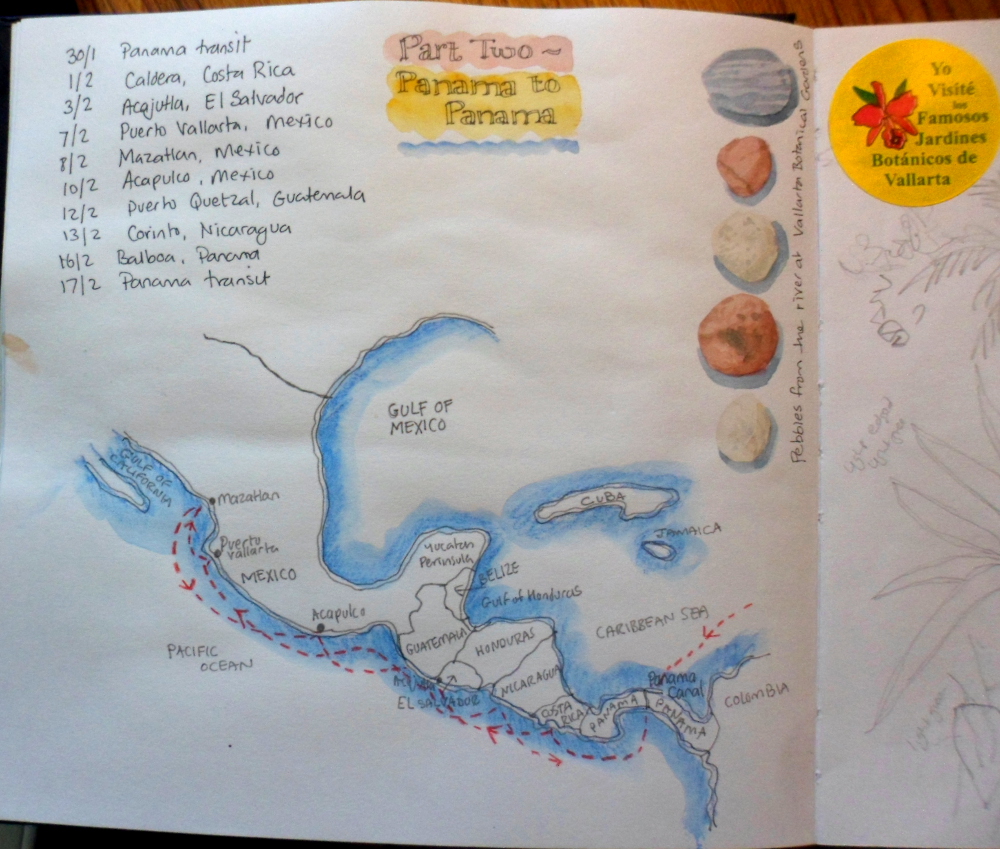 30/1 Panama transit
1/2 Caldera, Costa Rica
3/2 Acajutla, El Salvador
7/2 Puerto Vallarta, Mexico
8/2 Mazatlan, Mexico
10/2 Acapulco, Mexico
12/2 Puerto Quetzal, Guatemala
13/2 Corinto, Nicaragua
16/2 Balboa, Panama
17/2 Panama transit
Part Two ~
Panama to
Panama
Pebbles from the river at Vallarta Botanical Gardens
Yo
Visité
los
Famosos
Jardines
Botánicos de
Vallarta
GULF OF
MEXICO
GULF OF
CALIFORNIA
Mazatlan
Puerto
Vallarta
MEXICO
Acapulco
PACIFIC
OCEAN
CUBA
JAMAICA
Yucatan
Peninsula
BELIZE
Gulf of Honduras
CARIBBEAN SEA
GUATEMALA
HONDURAS
NICARAGUA
EL SALVADOR
COSTA
RICA
PANAMA
Panama
Canal
PANAMA
COLOMBIA